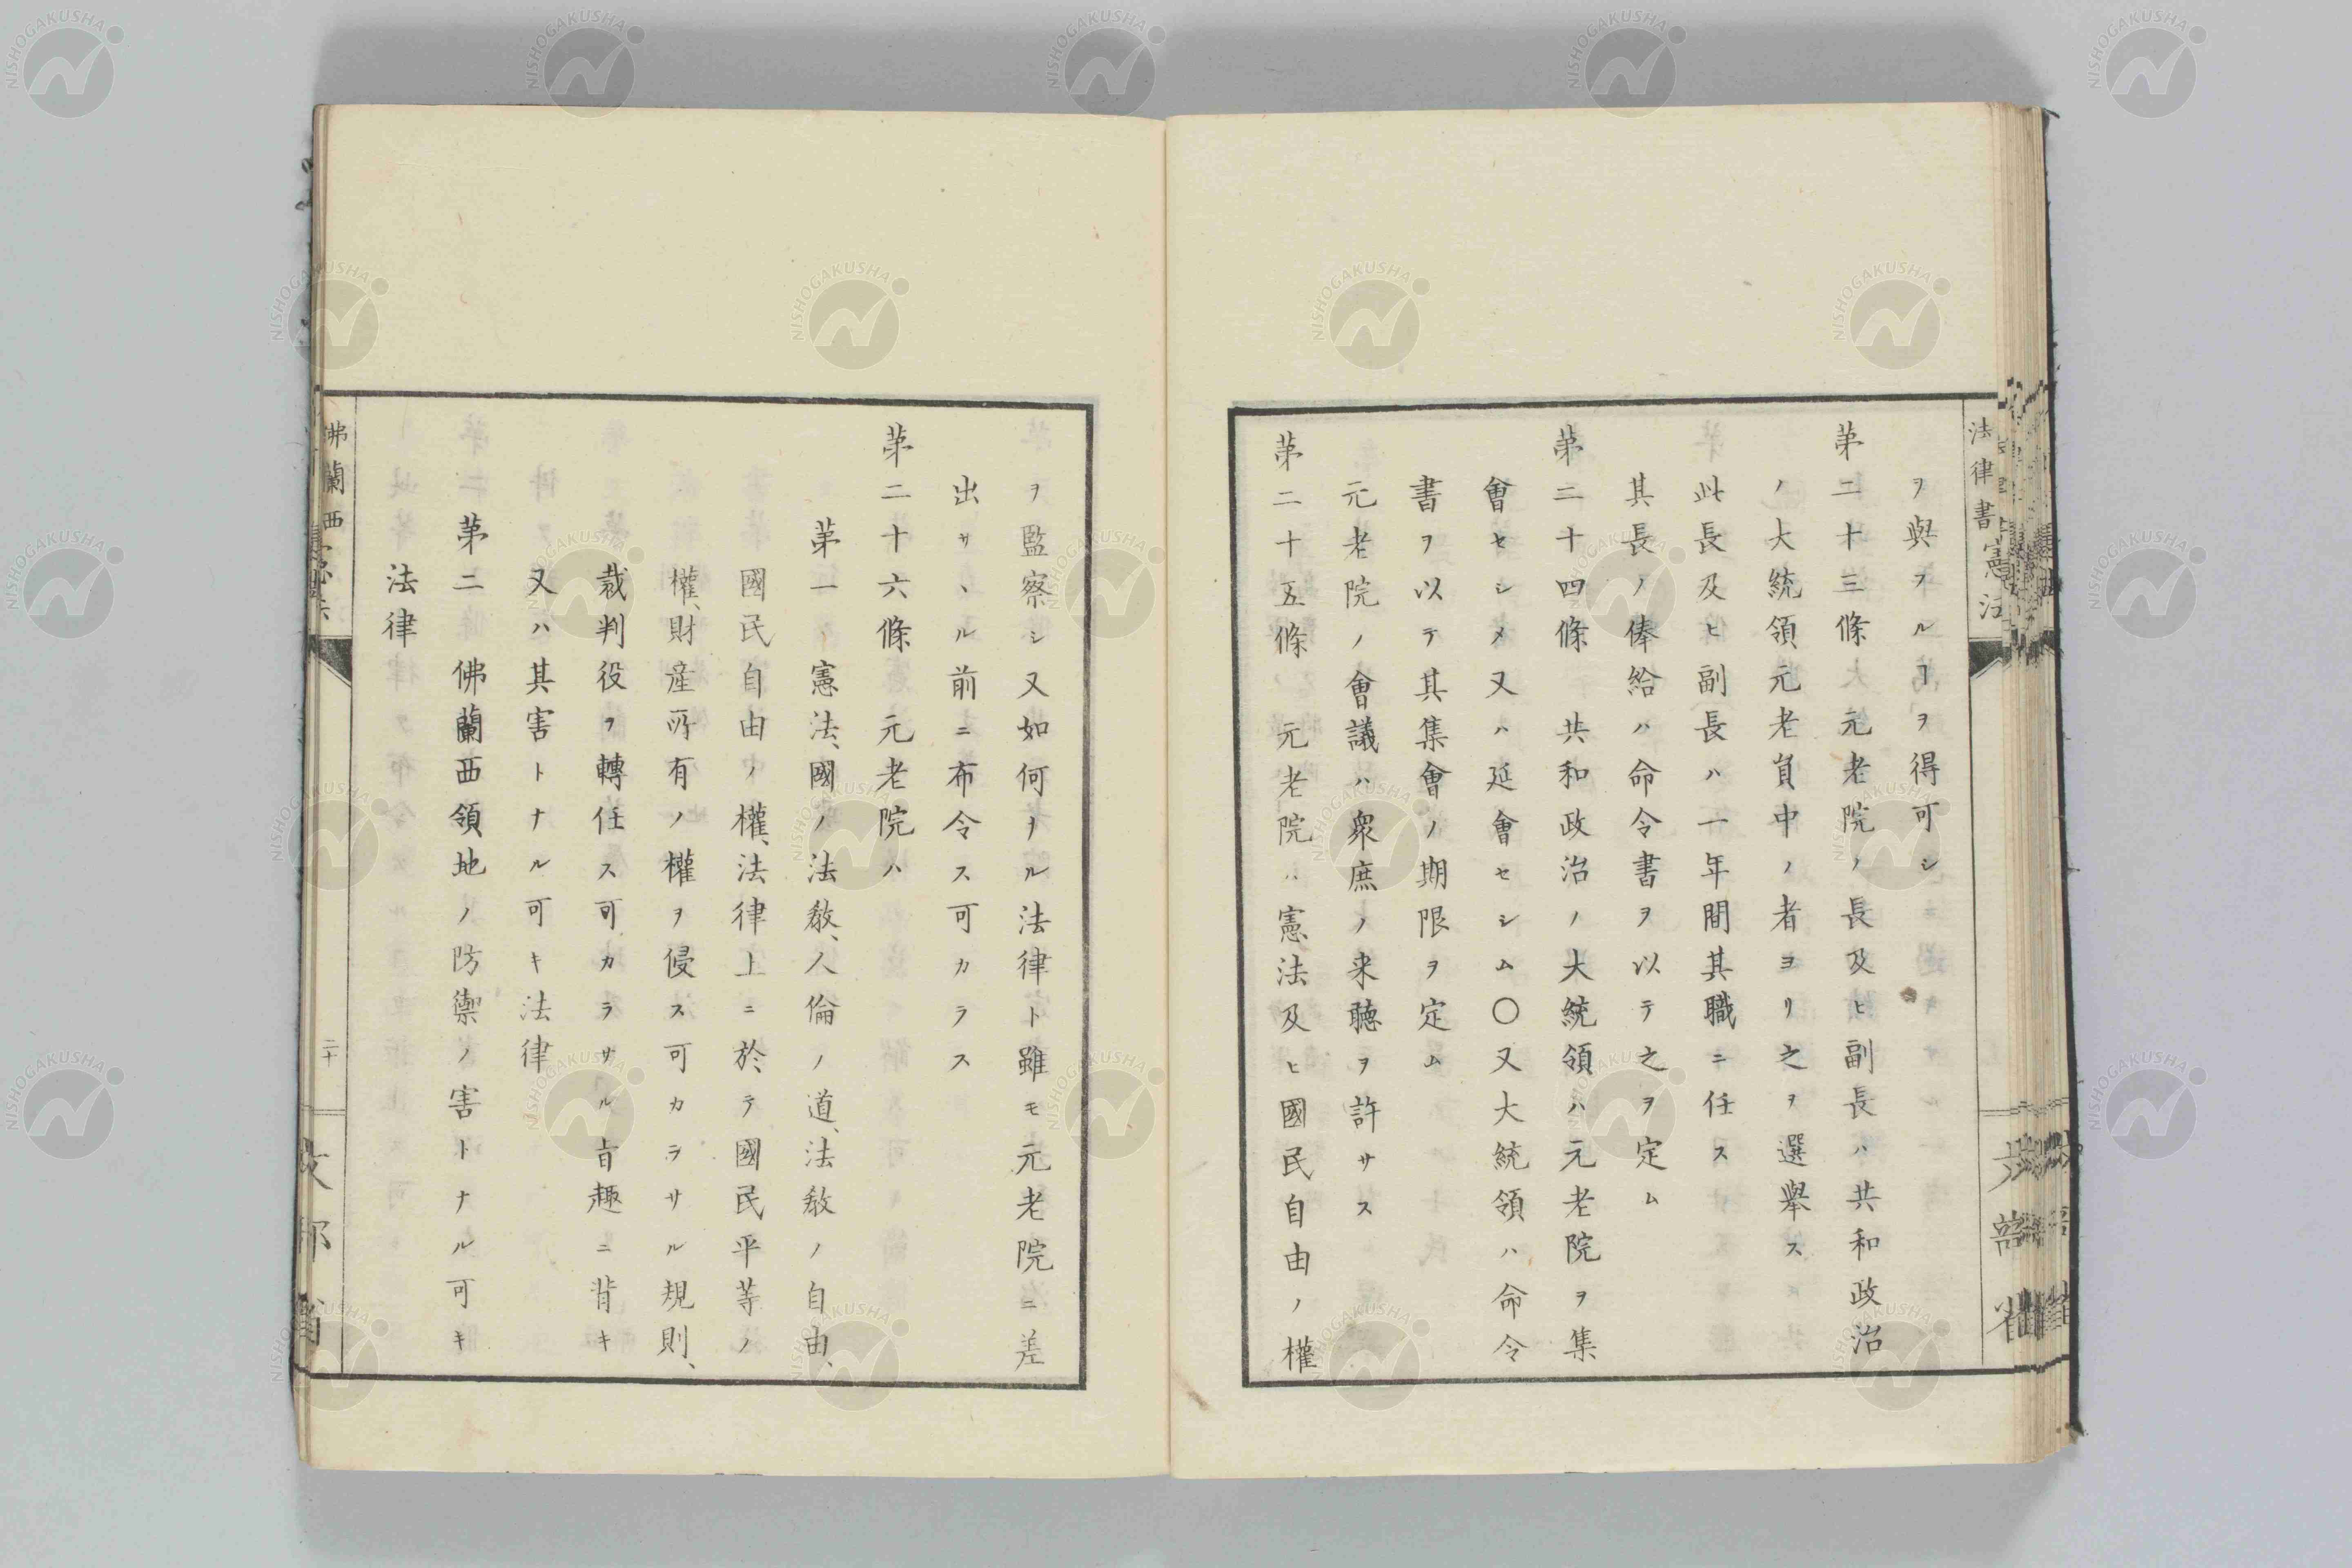 法律書憲法
ヲ與フルヿヲ得可シ
第二十三條 元老院ノ長及ヒ副長ハ共和政治
ノ大統領元老員中ノ者ヨリ之ヲ選擧ス
此長及ヒ副長ハ一年間其職ニ任ス
其長ノ俸給ハ命令書ヲ以テ之ヲ定ム
第二十四條 共和政治ノ大統領ハ元老院ヲ集
會セシメ又ハ延會セシム〇又大統領ハ命令
書ヲ以テ其集會ノ期限ヲ定ム
元老院ノ會議ハ衆庶ノ来聴ヲ許サス
第二十五條 元老院ハ憲法及ヒ國民自由ノ權
ヲ監察シ又如何ナル法律ト雖モ元老院ニ差
出サヽル前ニ布令ス可カラス
第二十六條 元老院ハ
第一 憲法、國ノ法敎、人倫ノ道、法敎ノ自由、
國民自由ノ權、法律上ニ於テ國民平等ノ
權、財産所有ノ權ヲ侵ス可カラサル規則、
裁判役ヲ轉任ス可カラサル旨趣ニ背キ
又ハ其害トナル可キ法律
第二 佛蘭西領地ノ防禦ノ害トナル可キ
法律
佛蘭西
二十
文部省
NISHOGAKUSHA